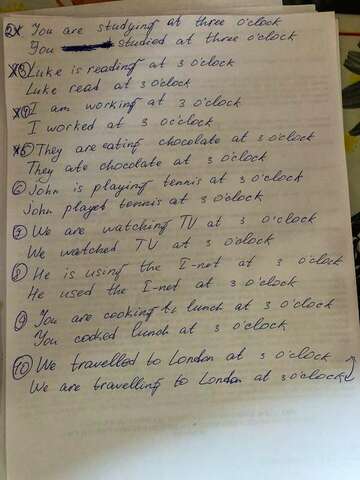 2 You are studying at three o'clock
You studied at three o'clock
3 Luke is reading at 3 o'clock
Luke read at 3 o'clock
4 I am working at 3 o'clock
I worked at 3 o'clock
5 They are eating chocolate at 3 o'clock
They ate chocolate at 3 o'clock
6 John is playing tennis at 3 o'clock
John played tennis at 3 o'clock
7 We are watching TV at 3 o'clock
We watched TV at 3 o'clock
8 He is using the I-net at 3 o'clock
He used the I-net at 3 o'clock
9 You are cooking lunch at 3 o'clock
You cooked lunch at 3 o'clock
10 We travelled to London at 3 o'clock
We are travelling to London at 3 o'clock